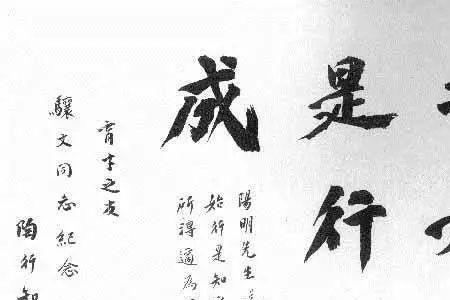 是行
成
陽明先生
始行是知
所得適為
育才之友
驤文同志紀念
陶行知